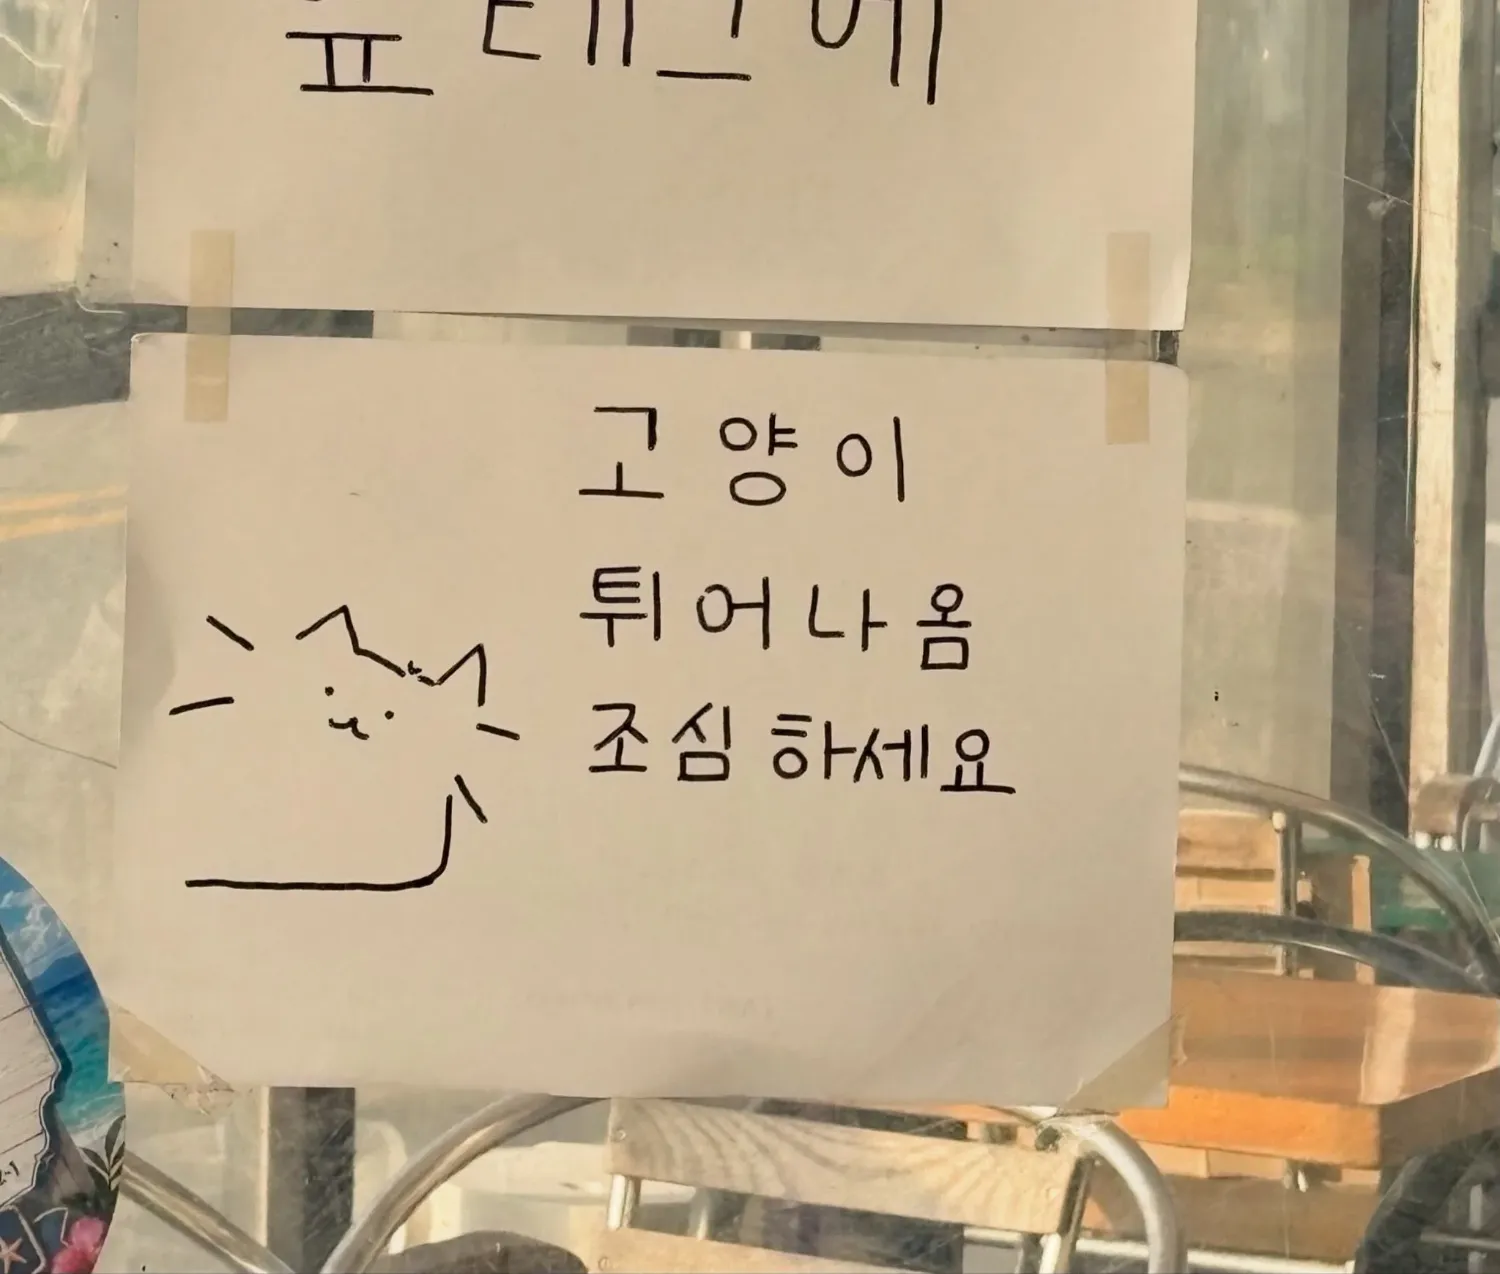 고양이
튀어나옴
조심하세요